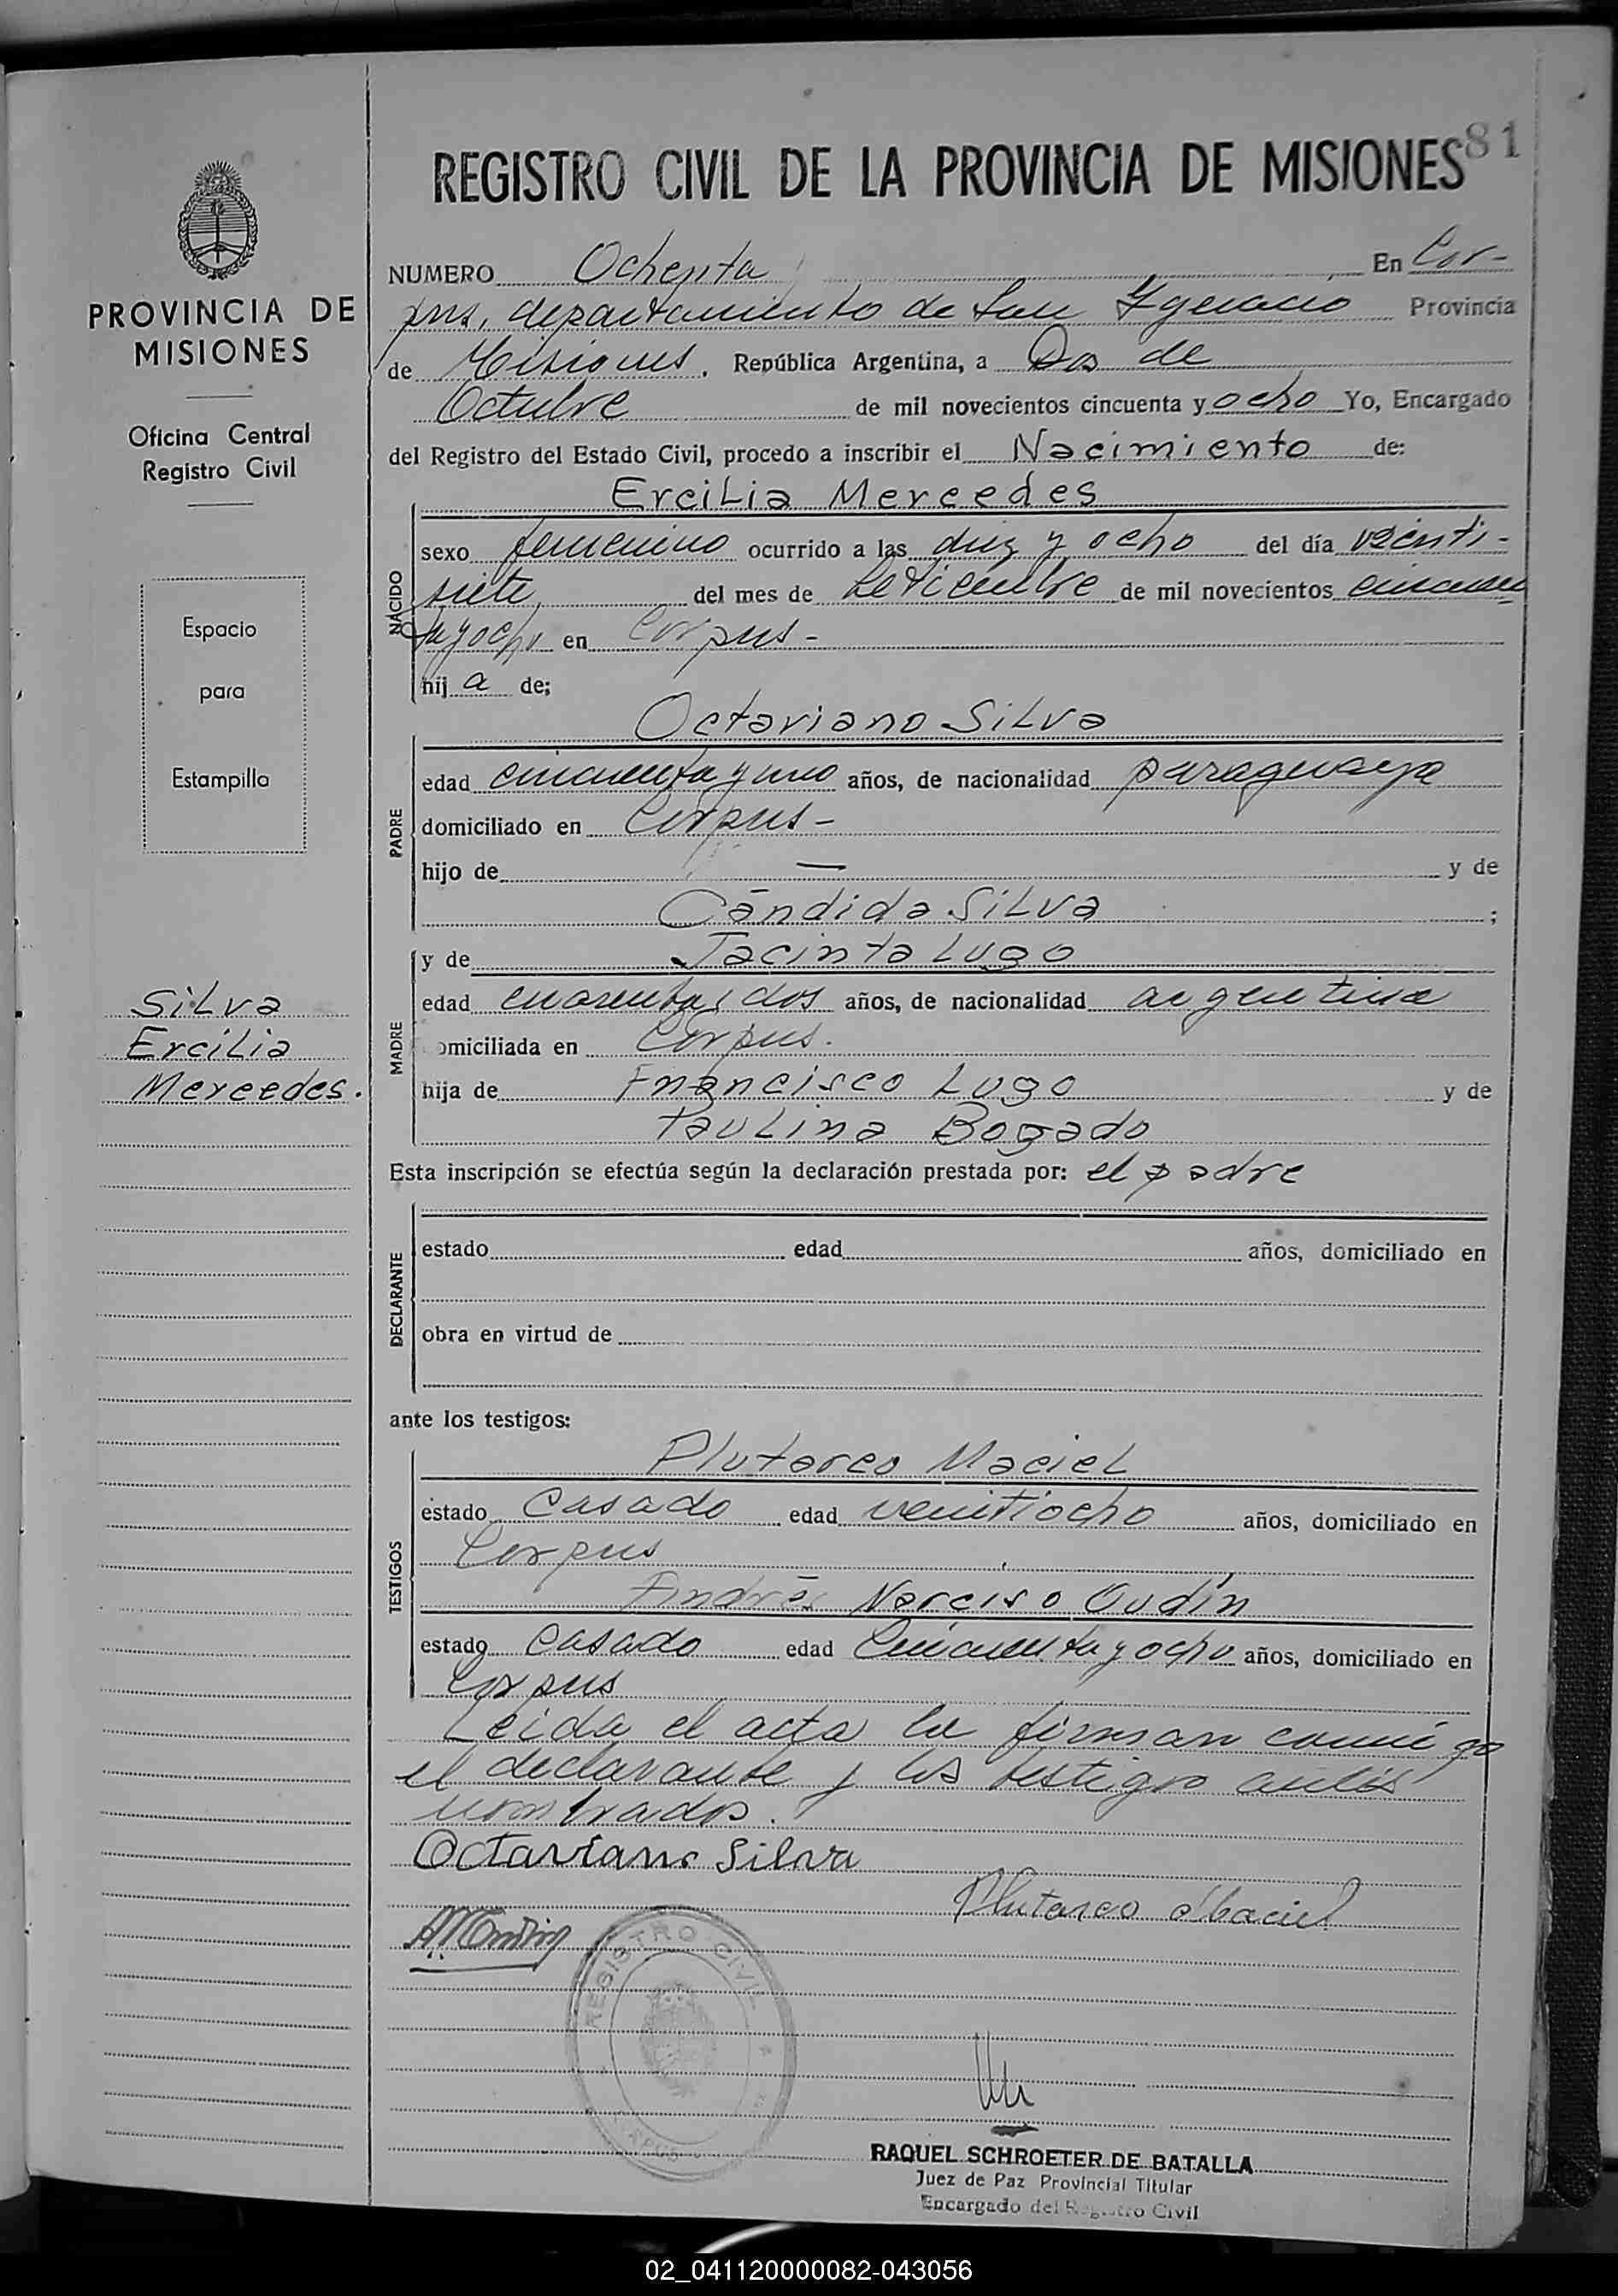 81
REGISTRO CIVIL DE LA PROVINCIA DE MISIONES
PROVINCIA DE
MISIONES
Oficina Central
Registro Civil
Espacio
para
Estampilla
Silva
Ercilia
Mercedes.
NUMERO Ochenta En Cor-
pus, departamento de San Ygnacio Provincia
de Misiones, República Argentina, a Dos de
Octubre de mil novecientos cincuenta y ocho Yo, Encargado
del Registro del Estado Civil, procedo a inscribir el Nacimiento de:
Ercilia Mercedes
NACIDO
sexo femenino ocurrido a las diez y ocho del día veinti-
siete, del mes de Setiembre de mil novecientos cincuen
ta y ocho en Corpus -
hij a de;
Octaviano Silva
PADRE
edad cincuenta y uno años, de nacionalidad paraguaya
domiciliado en Corpus -
hijo de — y de
Cándida Silva ;
MADRE
y de Jacinta Lugo
edad cuarenta y dos años, de nacionalidad argentina
omiciliada en Corpus.
hija de Francisco Lugo y de
Paulina Bogado
Esta inscripción se efectúa según la declaración prestada por: el padre
DECLARANTE
estado edad años, domiciliado en
obra en virtud de
ante los testigos:
TESTIGOS
Plutarco Maciel
estado Casado edad veintiocho años, domiciliado en
Corpus
Andrés Narciso Oudín
estado casado edad Cincuenta y ocho años, domiciliado en
Corpus
Leida el acta la firman conmigo
el declarante y los testigos antes
nombrados.
Octaviano Silva
Plutarco Maciel
REGISTRO CIVIL
RAQUEL SCHROETER DE BATALLA
Juez de Paz Provincial Titular
Encargado del Registro Civil
02_041120000082-043056